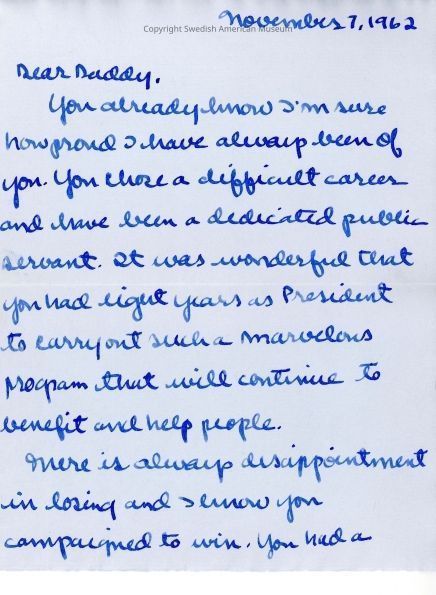 November 7, 1962
Copyright Swedish American Museum
Dear Daddy,
You already know I'm sure
how proud I have always been of
you. You chose a difficult career
and have been a dedicated public
servant. It was wonderful that
you had eight years as President
to carry out such a marvelous
program that will continue to
benefit and help people.
There is always disappointment
in losing and I know you
campaigned to win. You had a